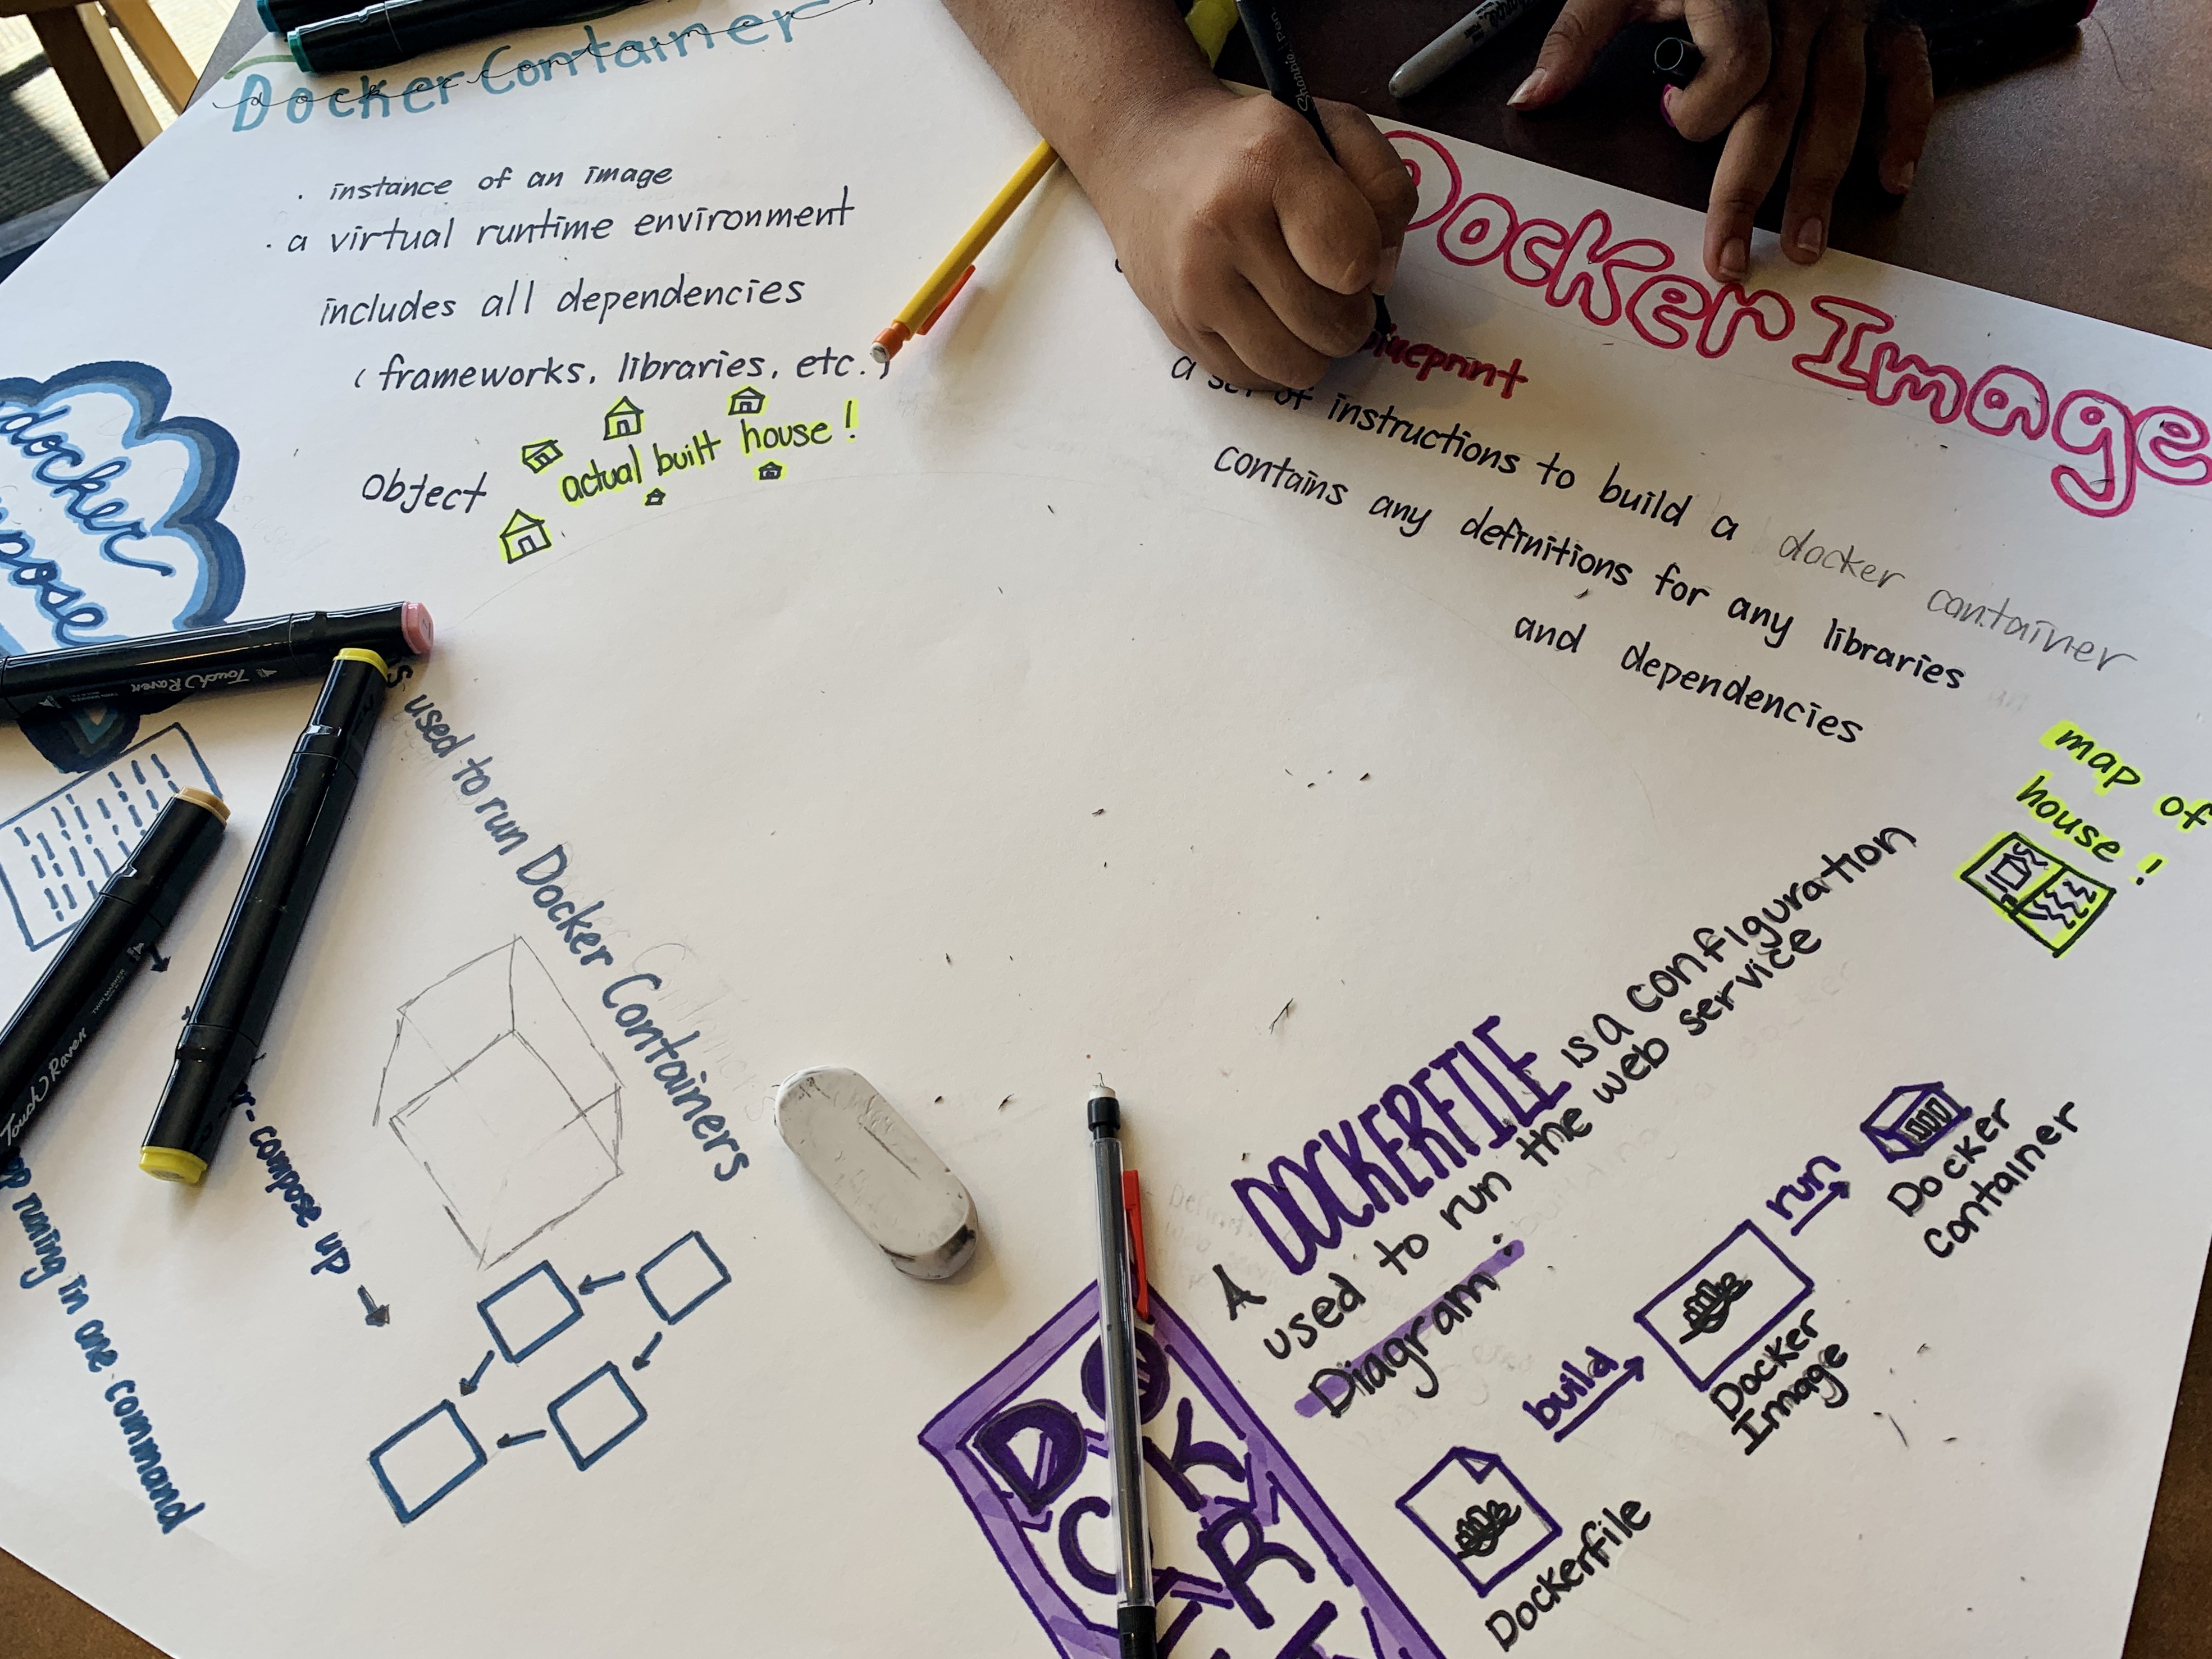 Docker Container
docker container
. instance of an image
. a virtual runtime environment
includes all dependencies
( frameworks, libraries, etc.)
Object
actual built house !
Docker Image
blueprint
a set of instructions to build a docker container
contains any definitions for any libraries
and dependencies
map of
house !
docker
used to run Docker Containers
-compose up →
running in one command
A DOCKERFILE is a configuration
used to run the web service
Diagram :
Dockerfile
build
Docker
Image
run
Docker
Container
DOCK
Touch Raven
Touch Raven